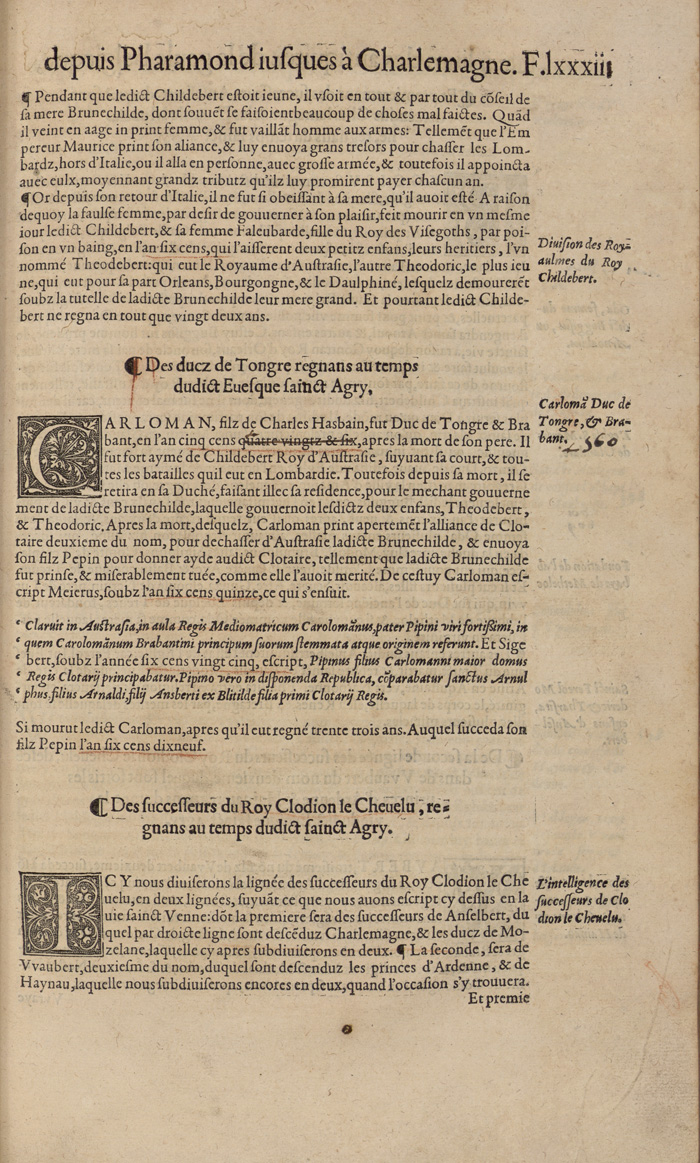 depuis Pharamond iuſques à Charlemagne. F.lxxxiii
¶ Pendant que ledict Childebert eſtoit ieune, il vſoit en tout & par tout du cõſeil de
ſa mere Brunechilde, dont ſouuẽt ſe faiſoient beaucoup de choſes mal faictes. Quãd
il veint en aage in print femme, & fut vaillãt homme aux armes: Tellemẽt que l'Em
pereur Maurice print ſon aliance, & luy enuoya grans treſors pour chaſſer les Lom-
bardz, hors d'Italie, ou il alla en perſonne, auec groſſe armée, & toutefois il appoincta
auec eulx, moyennant grandz tributz qu'ilz luy promirent payer chaſcun an.
¶ Or depuis ſon retour d'Italie, il ne fut ſi obeiſſant à ſa mere, qu'il auoit eſté A raiſon
dequoy la faulſe femme, par deſir de gouuerner à ſon plaiſir, feit mourir en vn meſme
iour ledict Childebert, & ſa femme Faleubarde, fille du Roy des Viſegoths, par poi-
ſon en vn baing, en l'an ſix cens, qui l'aiſſerent deux petitz enfans, leurs heritiers, l'vn
nommé Theodebert: qui eut le Royaume d'Auſtraſie, l'autre Theodoric, le plus ieu
ne, qui eut pour ſa part Orleans, Bourgongne, & le Daulphiné, leſquelz demourerẽt
ſoubz la tutelle de ladicte Brunechilde leur mere grand. Et pourtant ledict Childe-
bert ne regna en tout que vingt deux ans.
Diuiſion des Roy-
aulmes du Roy
Childebert.
¶ Des ducz de Tongre regnans au temps
dudict Eueſque ſainct Agry,
CARLOMAN, filz de Charles Hasbain, fut Duc de Tongre & Bra
bant, en l'an cinq cens quatre vingtz & ſix, apres la mort de ſon pere. Il
fut fort aymé de Childebert Roy d'Auſtraſie, ſuyuant ſa court, & tou-
tes les batailles quil eut en Lombardie. Toutefois depuis ſa mort, il ſe
retira en ſa Duché, faiſant illec ſa reſidence, pour le mechant gouuerne
ment de ladicte Brunechilde, laquelle gouuernoit leſdictz deux enfans, Theodebert,
& Theodoric. Apres la mort, deſquelz, Carloman print apertemẽt l'alliance de Clo-
taire deuxieme du nom, pour dechaſſer d'Auſtraſie ladicte Brunechilde, & enuoya
ſon filz Pepin pour donner ayde audict Clotaire, tellement que ladicte Brunechilde
fut prinſe, & miſerablement tuée, comme elle l'auoit merité. De ceſtuy Carloman eſ-
cript Meierus, ſoubz l'an ſix cens quinze, ce qui s'enſuit.
Carlomã Duc de
Tongre, & Bra-
bant. 560
‘ Claruit in Auſtraſia, in aula Regis Mediomatricum Carolomãnus, pater Pipini viri fortiſſimi, in
‘ quem Carolomãnum Brabantini principum ſuorum ſtemmata atque originem referunt. Et Sige
‘ bert, ſoubz l'année ſix cens vingt cinq, eſcript, Pipinus filius Carlomanni maior domus
‘ Regis Clotarij principabatur. Pipino vero in diſponenda Republica, cõparabatur ſanctus Arnul
‘ phus, filius Arnaldi, filij Ansberti ex Blitilde filia primi Clotarij Regis.
Si mourut ledict Carloman, apres qu'il eut regné trente trois ans. Auquel ſucceda ſon
filz Pepin l'an ſix cens dixneuf.
¶ Des ſucceſſeurs du Roy Clodion le Cheuelu, re-
gnans au temps dudict ſainct Agry.
ICY nous diuiſerons la lignée des ſucceſſeurs du Roy Clodion le Che
uelu, en deux lignées, ſuyuãt ce que nous auons eſcript cy deſſus en la
vie ſainct Venne: dõt la premiere ſera des ſucceſſeurs de Anſelbert, du
quel par droicte ligne ſont deſcẽduz Charlemagne, & les ducz de Mo-
zelane, laquelle cy apres ſubdiuiſerons en deux. ¶ La ſeconde, ſera de
Vvaubert, deuxieſme du nom, duquel ſont deſcenduz les princes d'Ardenne, & de
Haynau, laquelle nous ſubdiuiſerons encores en deux, quand l'occaſion s'y trouuera.
L'intelligence des
ſucceſſeurs de Clo
dion le Cheuelu.
Et premie